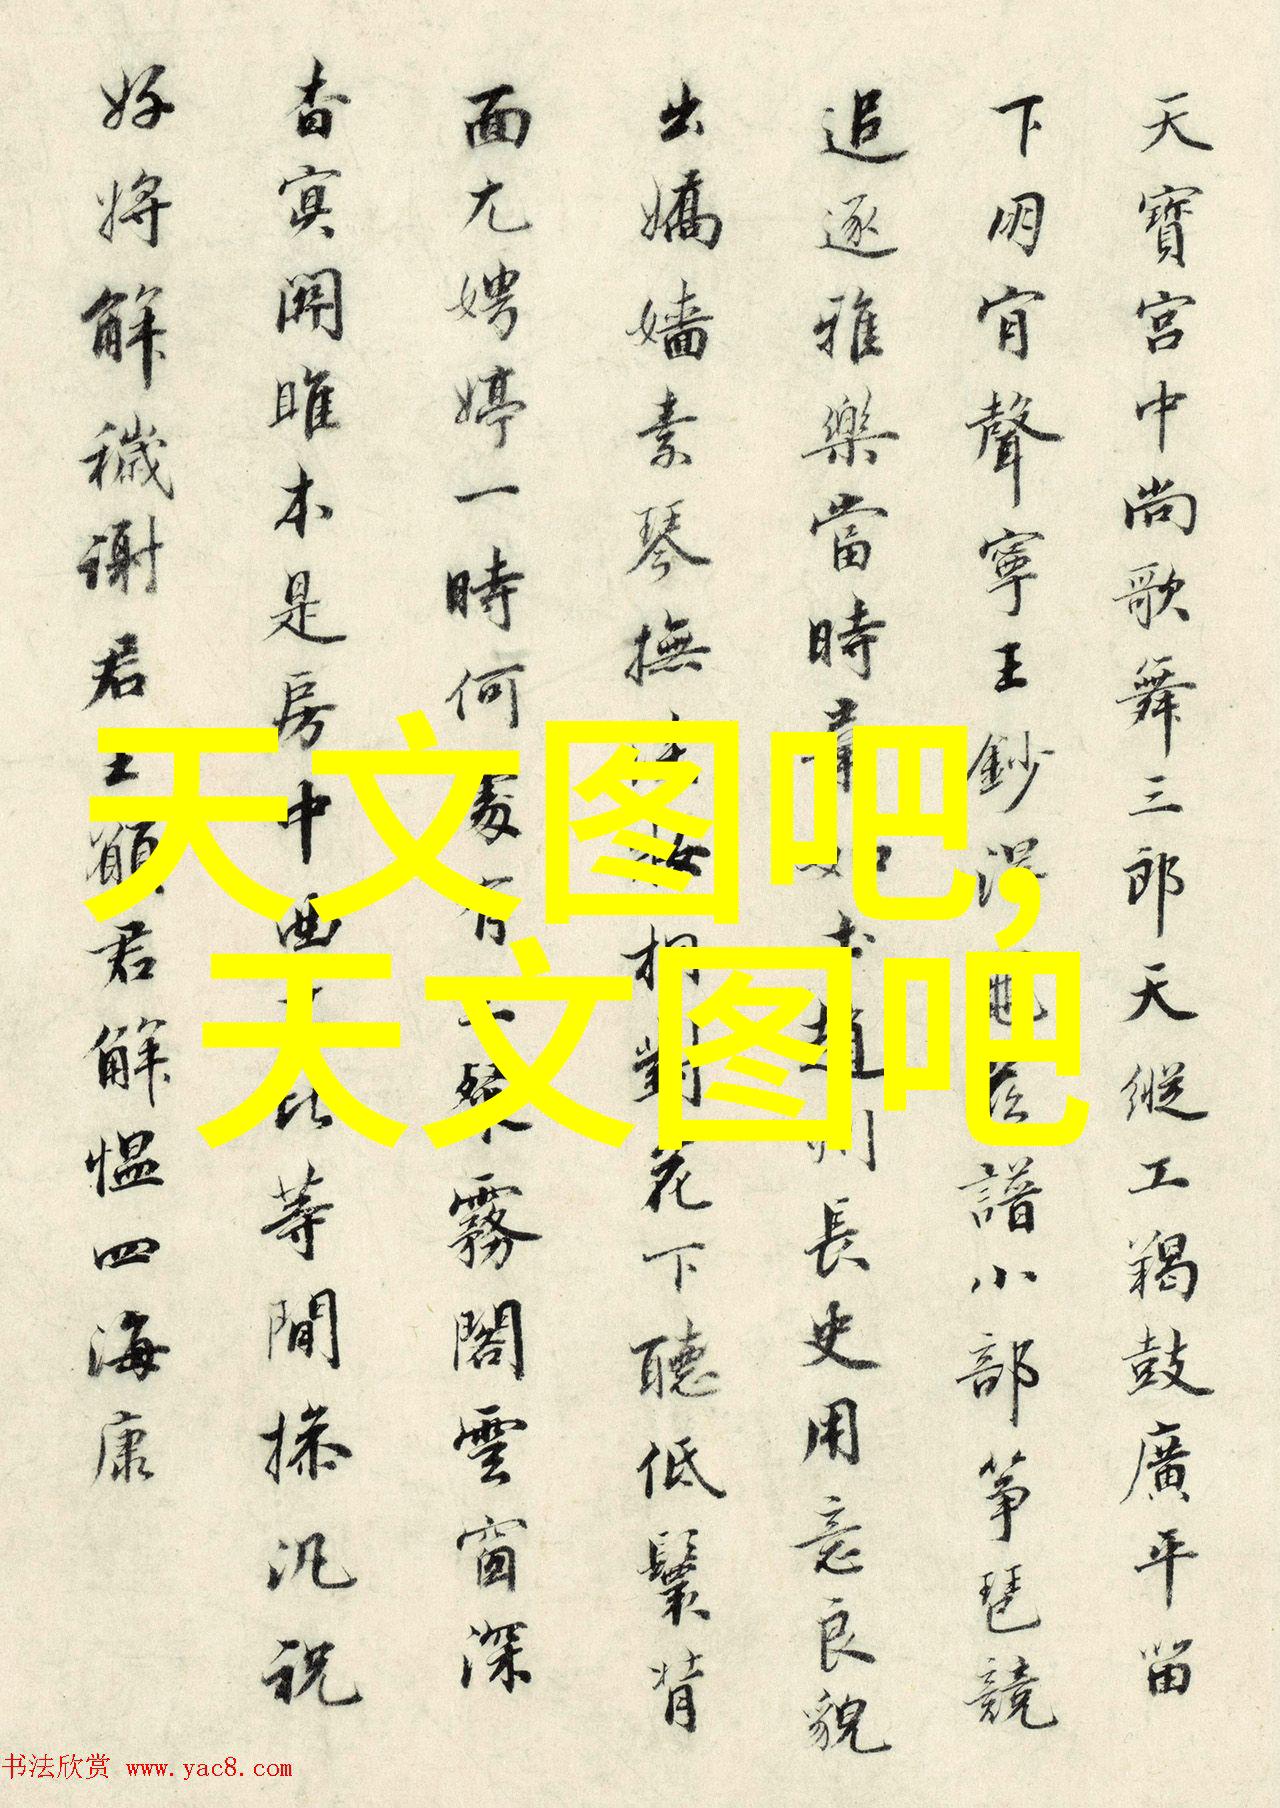 天寶宮中尚歌舞三郎天縱工羯鼓廣平留
下明宵聲寧王鈔譜小部箏琶競
追逐雅樂當時趙長史用意良貌
出嬌嬙素琴撫桐對花下聽低鬟背
面尤娉婷一時何處有霧閣雲窗深
杳冥關雎本是房中曲等閒操況祝
好將解穢謝君王願君解慍四海康
天文图吧,
天文图吧
书法欣赏 www.yac8.com